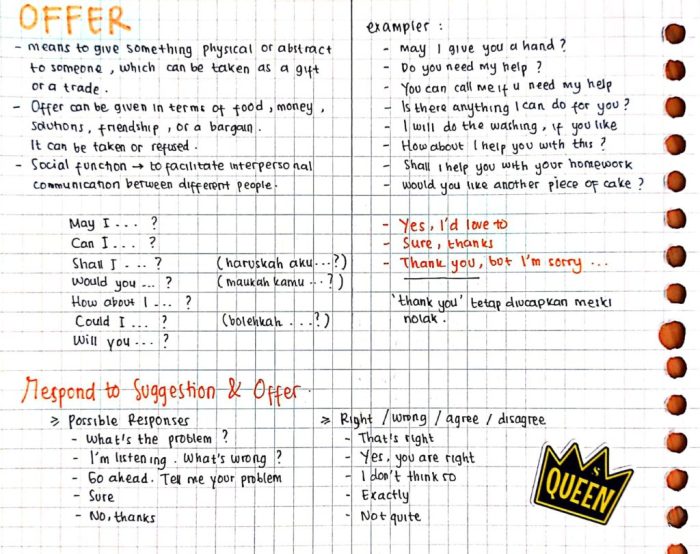 OFFER
- means to give something physical or abstract
to someone, which can be taken as a gift
or a trade.
- Offer can be given in terms of food, money,
solutions, friendship, or a bargain.
It can be taken or refused.
- Social function → to facilitate interpersonal
communication between different people.
exampler :
- may I give you a hand ?
- Do you need my help ?
- You can call me if u need my help
- Is there anything I can do for you ?
- I will do the washing, if you like
- How about I help you with this ?
- Shall I help you with your homework
- would you like another piece of cake ?
May I ... ?
Can I ... ?
Shall I ... ? (haruskah aku ...?)
Would you ... ? (maukah kamu ...?)
How about I ... ?
Could I ... ? (bolehkah ...?)
Will you ... ?
- Yes, I'd love to
- Sure, thanks
- Thank you, but I'm sorry ...
'thank you' tetap diucapkan meski
nolak.
Respond to Suggestion & Offer.
> Possible Responses
- What's the problem ?
- I'm listening. What's wrong ?
- Go ahead. Tell me your problem
- Sure
- No, thanks
> Right / wrong / agree / disagree
- That's right
- Yes, you are right
- I don't think so
- Exactly
- Not quite
$
QUEEN